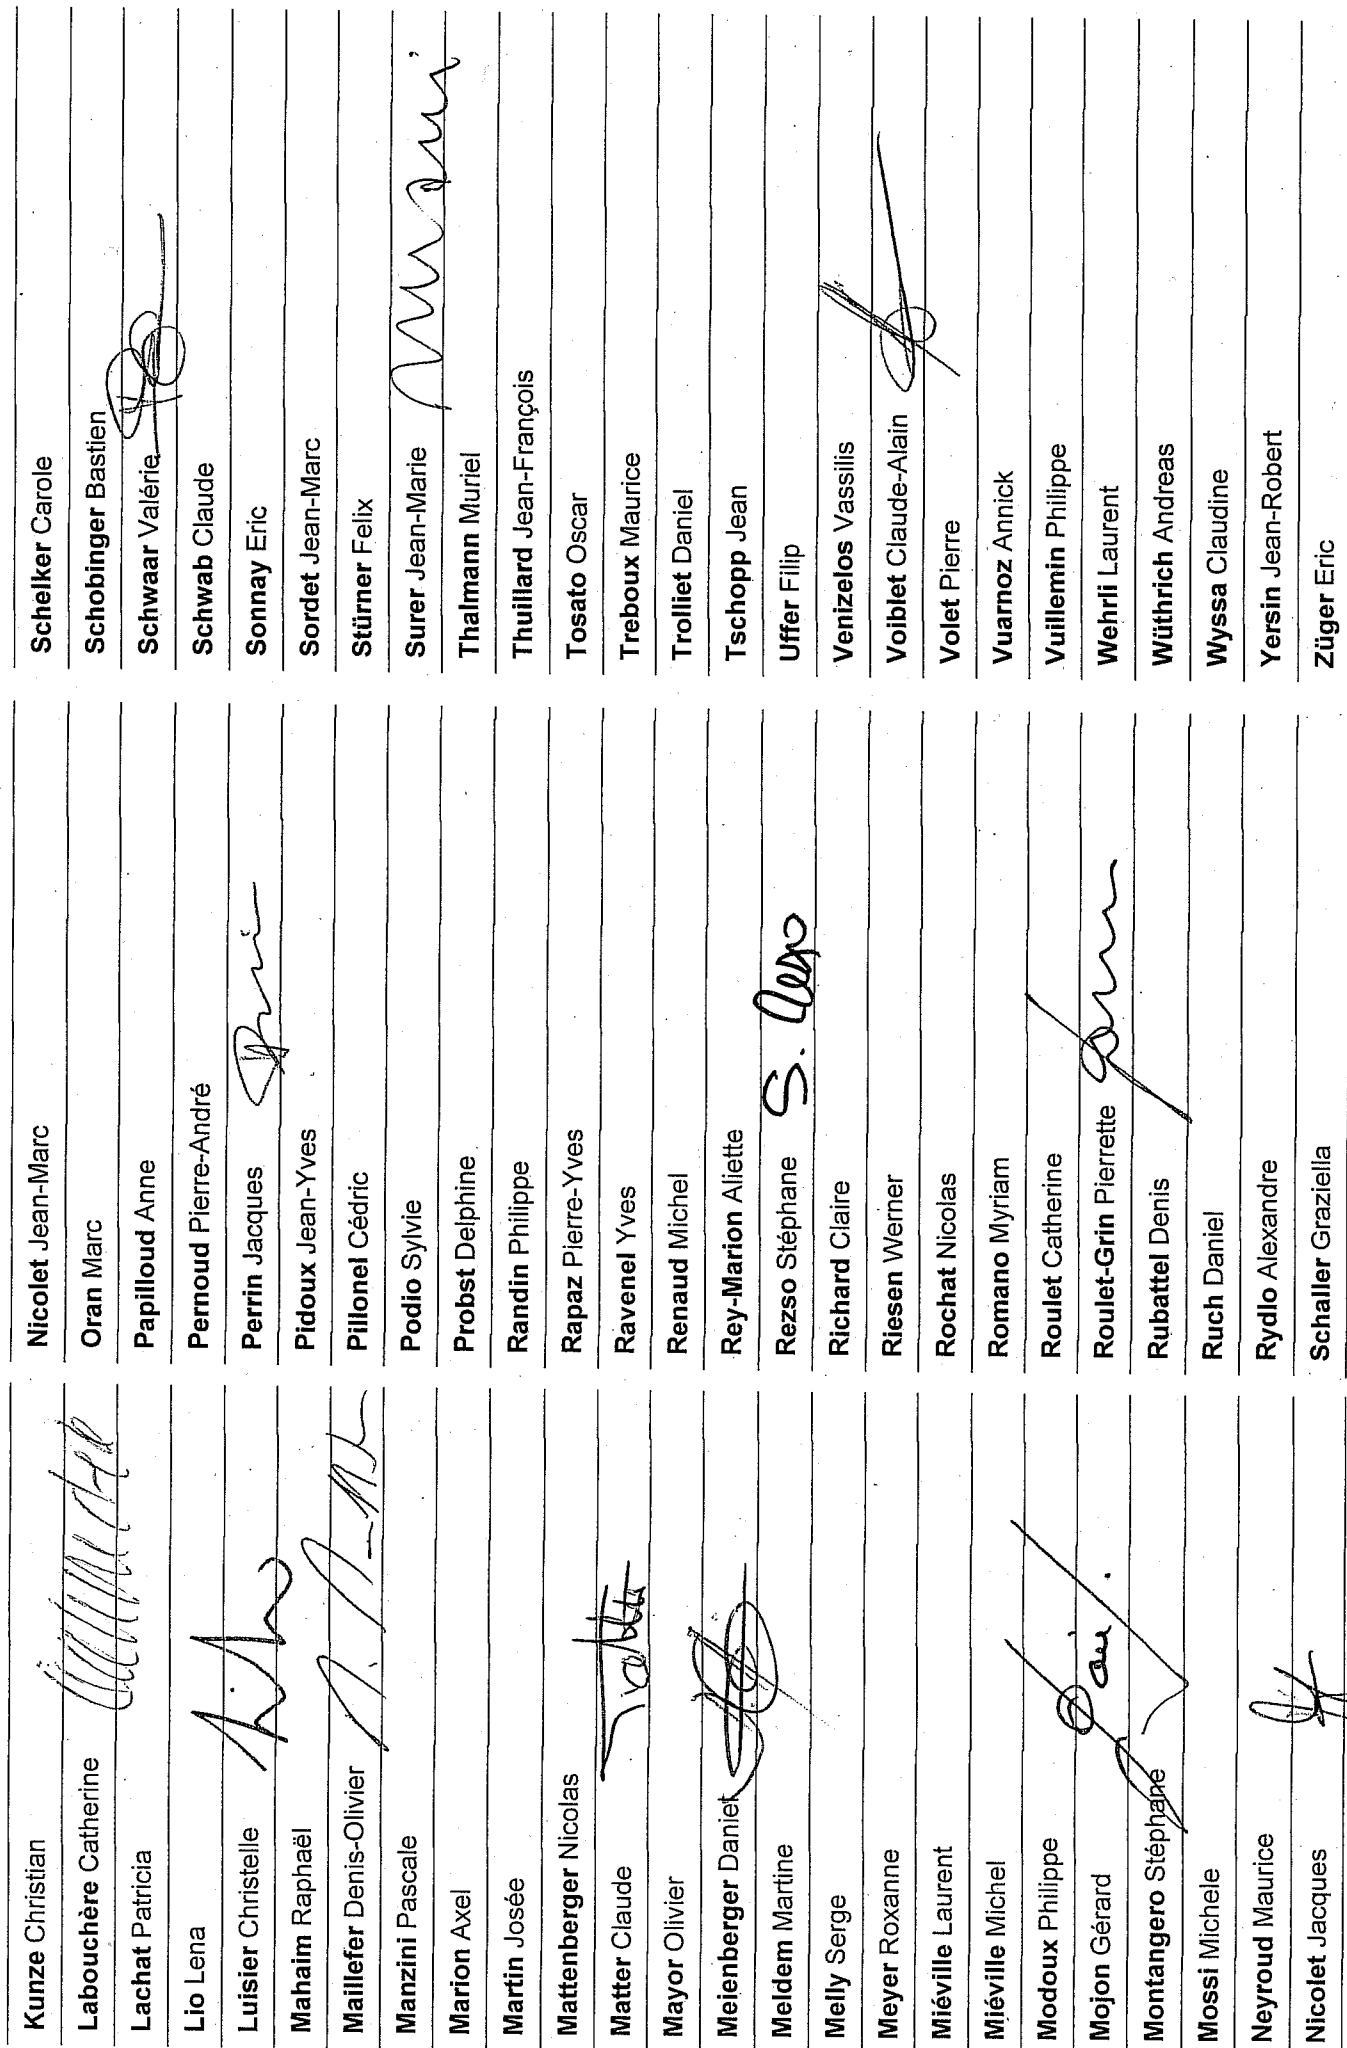 Kunze Christian
Labouchère Catherine
Lachat Patricia
Lio Lena
Luisier Christelle
Mahaim Raphaël
Maillefer Denis-Olivier
Manzini Pascale
Marion Axel
Martin Josée
Mattenberger Nicolas
Matter Claude
Mayor Olivier
Meienberger Daniel
Meldem Martine
Melly Serge
Meyer Roxanne
Miéville Laurent
Miéville Michel
Modoux Philippe
Mojon Gérard
Montangero Stéphane
Mossi Michele
Neyroud Maurice
Nicolet Jacques
Nicolet Jean-Marc
Oran Marc
Papilloud Anne
Pernoud Pierre-André
Perrin Jacques
Pidoux Jean-Yves
Pillonel Cédric
Podio Sylvie
Probst Delphine
Randin Philippe
Rapaz Pierre-Yves
Ravenel Yves
Renaud Michel
Rey-Marion Aliette
Rezso Stéphane S. Rezso
Richard Claire
Riesen Werner
Rochat Nicolas
Romano Myriam
Roulet Catherine
Roulet-Grin Pierrette
Rubattel Denis
Ruch Daniel
Rydlo Alexandre
Schaller Graziella
Schelker Carole
Schobinger Bastien
Schwaar Valérie
Schwab Claude
Sonnay Eric
Sordet Jean-Marc
Stürner Felix
Surer Jean-Marie
Thalmann Muriel
Thuillard Jean-François
Tosato Oscar
Treboux Maurice
Trolliet Daniel
Tschopp Jean
Uffer Filip
Venizelos Vassilis
Voiblet Claude-Alain
Volet Pierre
Vuarnoz Annick
Vuillemin Philippe
Wehrli Laurent
Wüthrich Andreas
Wyssa Claudine
Yersin Jean-Robert
Züger Eric